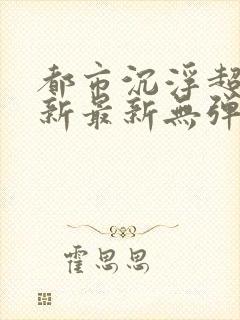 都市沉浮超
新最新無弹
霍思思